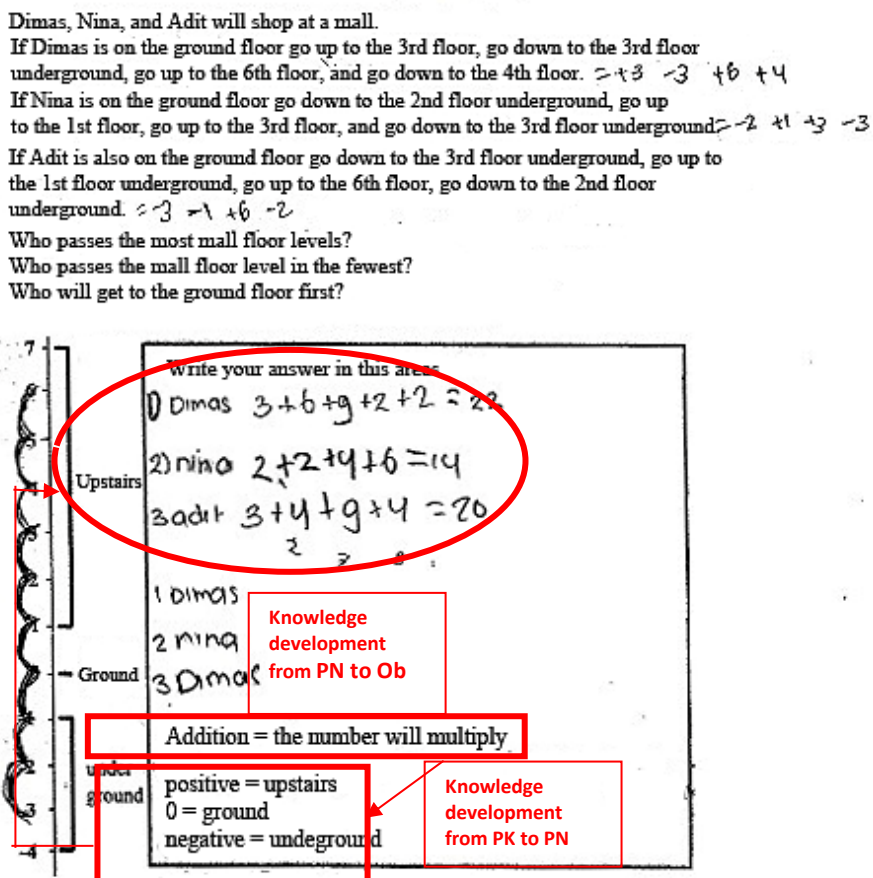 Dimas, Nina, and Adit will shop at a mall.
If Dimas is on the ground floor go up to the 3rd floor, go down to the 3rd floor
underground, go up to the 6th floor, and go down to the 4th floor. = +3 -3 +6 +4
If Nina is on the ground floor go down to the 2nd floor underground, go up
to the 1st floor, go up to the 3rd floor, and go down to the 3rd floor underground = -2 +1 +3 -3
If Adit is also on the ground floor go down to the 3rd floor underground, go up to
the 1st floor underground, go up to the 6th floor, go down to the 2nd floor
underground. = -3 -1 +6 -2
Who passes the most mall floor levels?
Who passes the mall floor level in the fewest?
Who will get to the ground floor first?
Write your answer in this areas
1) Dimas 3+6+9+2+2 = 22
2) nina 2+2+4+6=14
3 adit 3+4+9+4 = 20
2
1 Dimas
2 nina
3 Dimas
7
6
5
3
2
1
2
3
-4
Upstairs
Ground
under
ground
Knowledge
development
from PN to Ob
Addition = the number will multiply
positive = upstairs
0 = ground
negative = undeground
Knowledge
development
from PK to PN